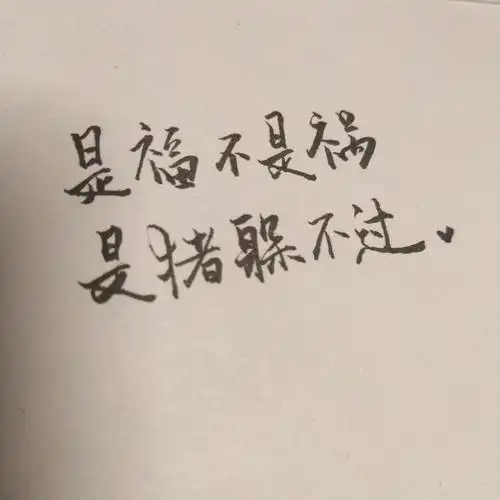 是福不是祸
是猪躲不过。